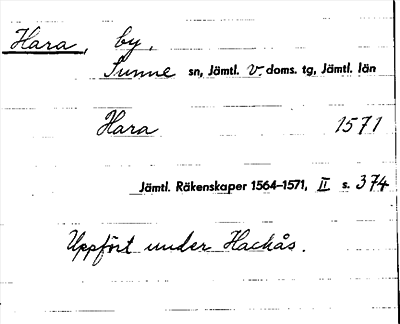 Hara, by,
Sunne sn, Jämtl. v. doms. tg, Jämtl. län
Hara 1571
Jämtl. Räkenskaper 1564–1571, II s. 374
Uppfört under Hackås.